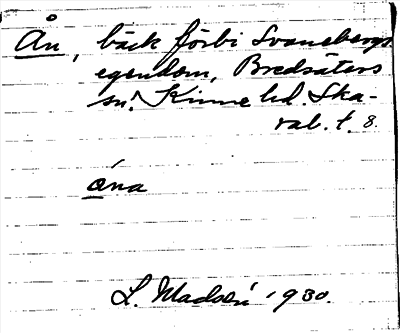 Ån, bäck förbi Svanebergs
egendom, Bredsäters
sn. Kinne hd. Ska-
rab. t. 8.
ána
L. 1930.